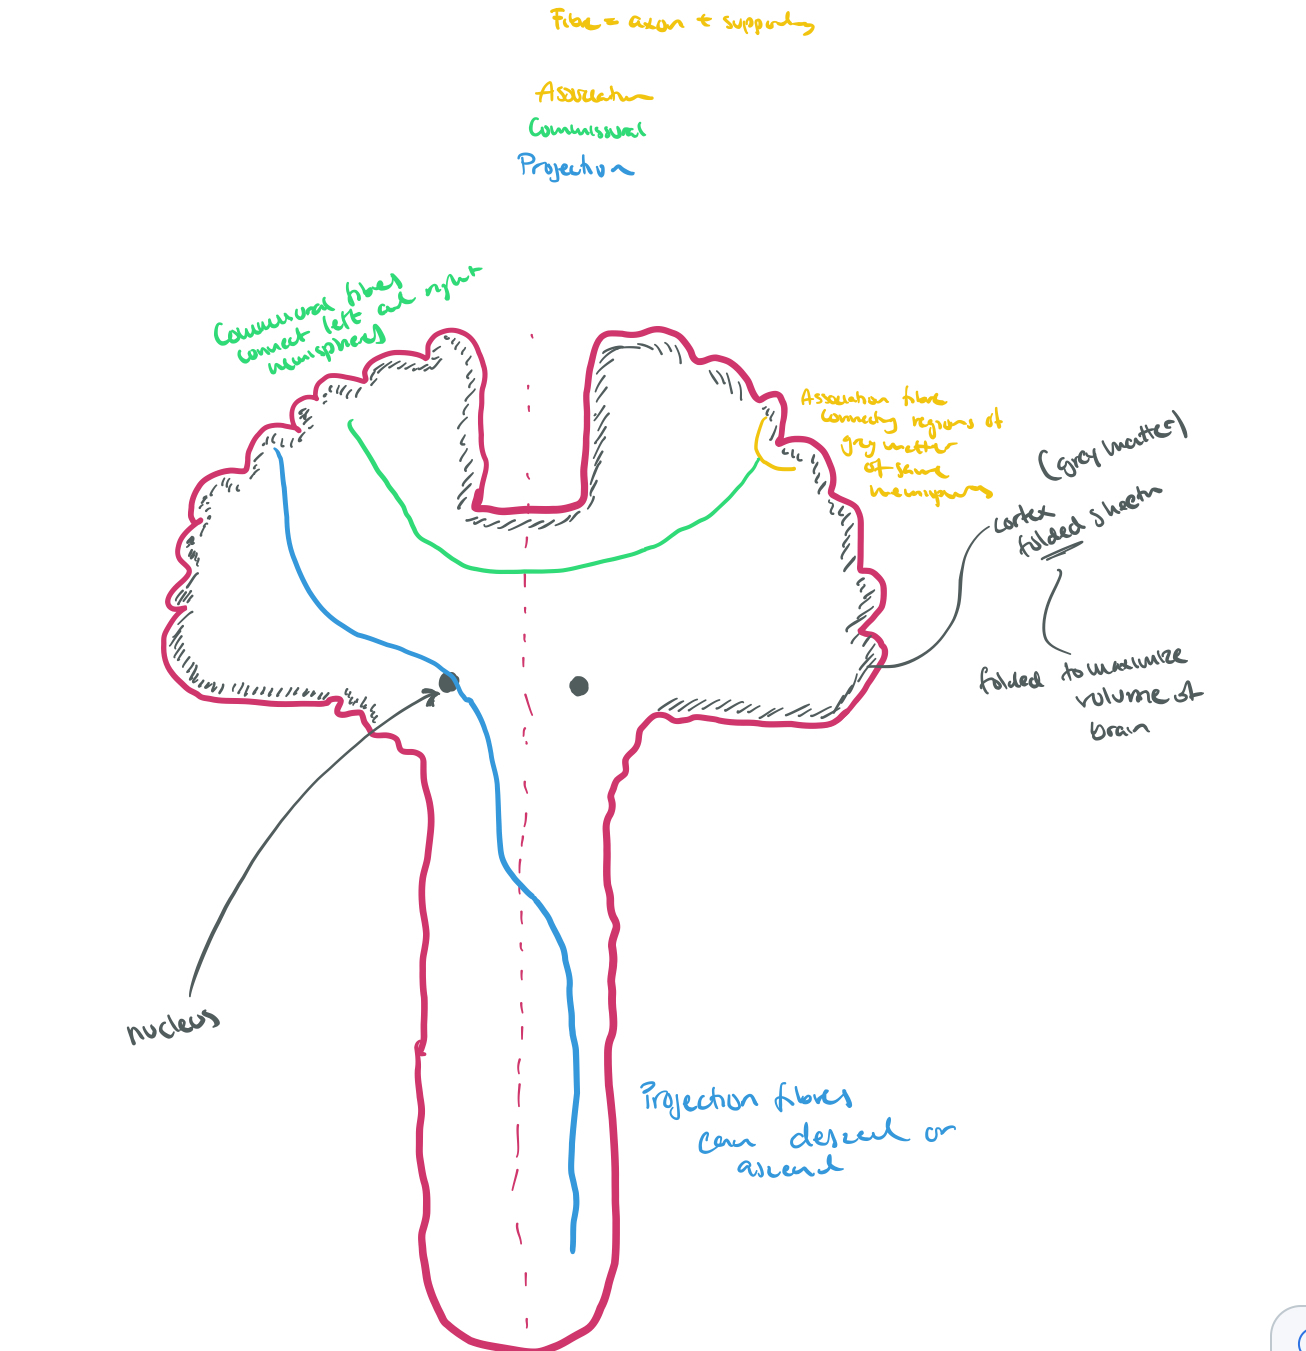 Fibre = axon + supporting
Association
Commissural
Projection
Commissural fibres
connect left and right
hemispheres
Association fibre
connecting regions of
grey matter
of same
(grey matter)
cortex
folded sheets
folded to maximize
volume of
brain
nucleus
Projection fibres
can descend or
ascend